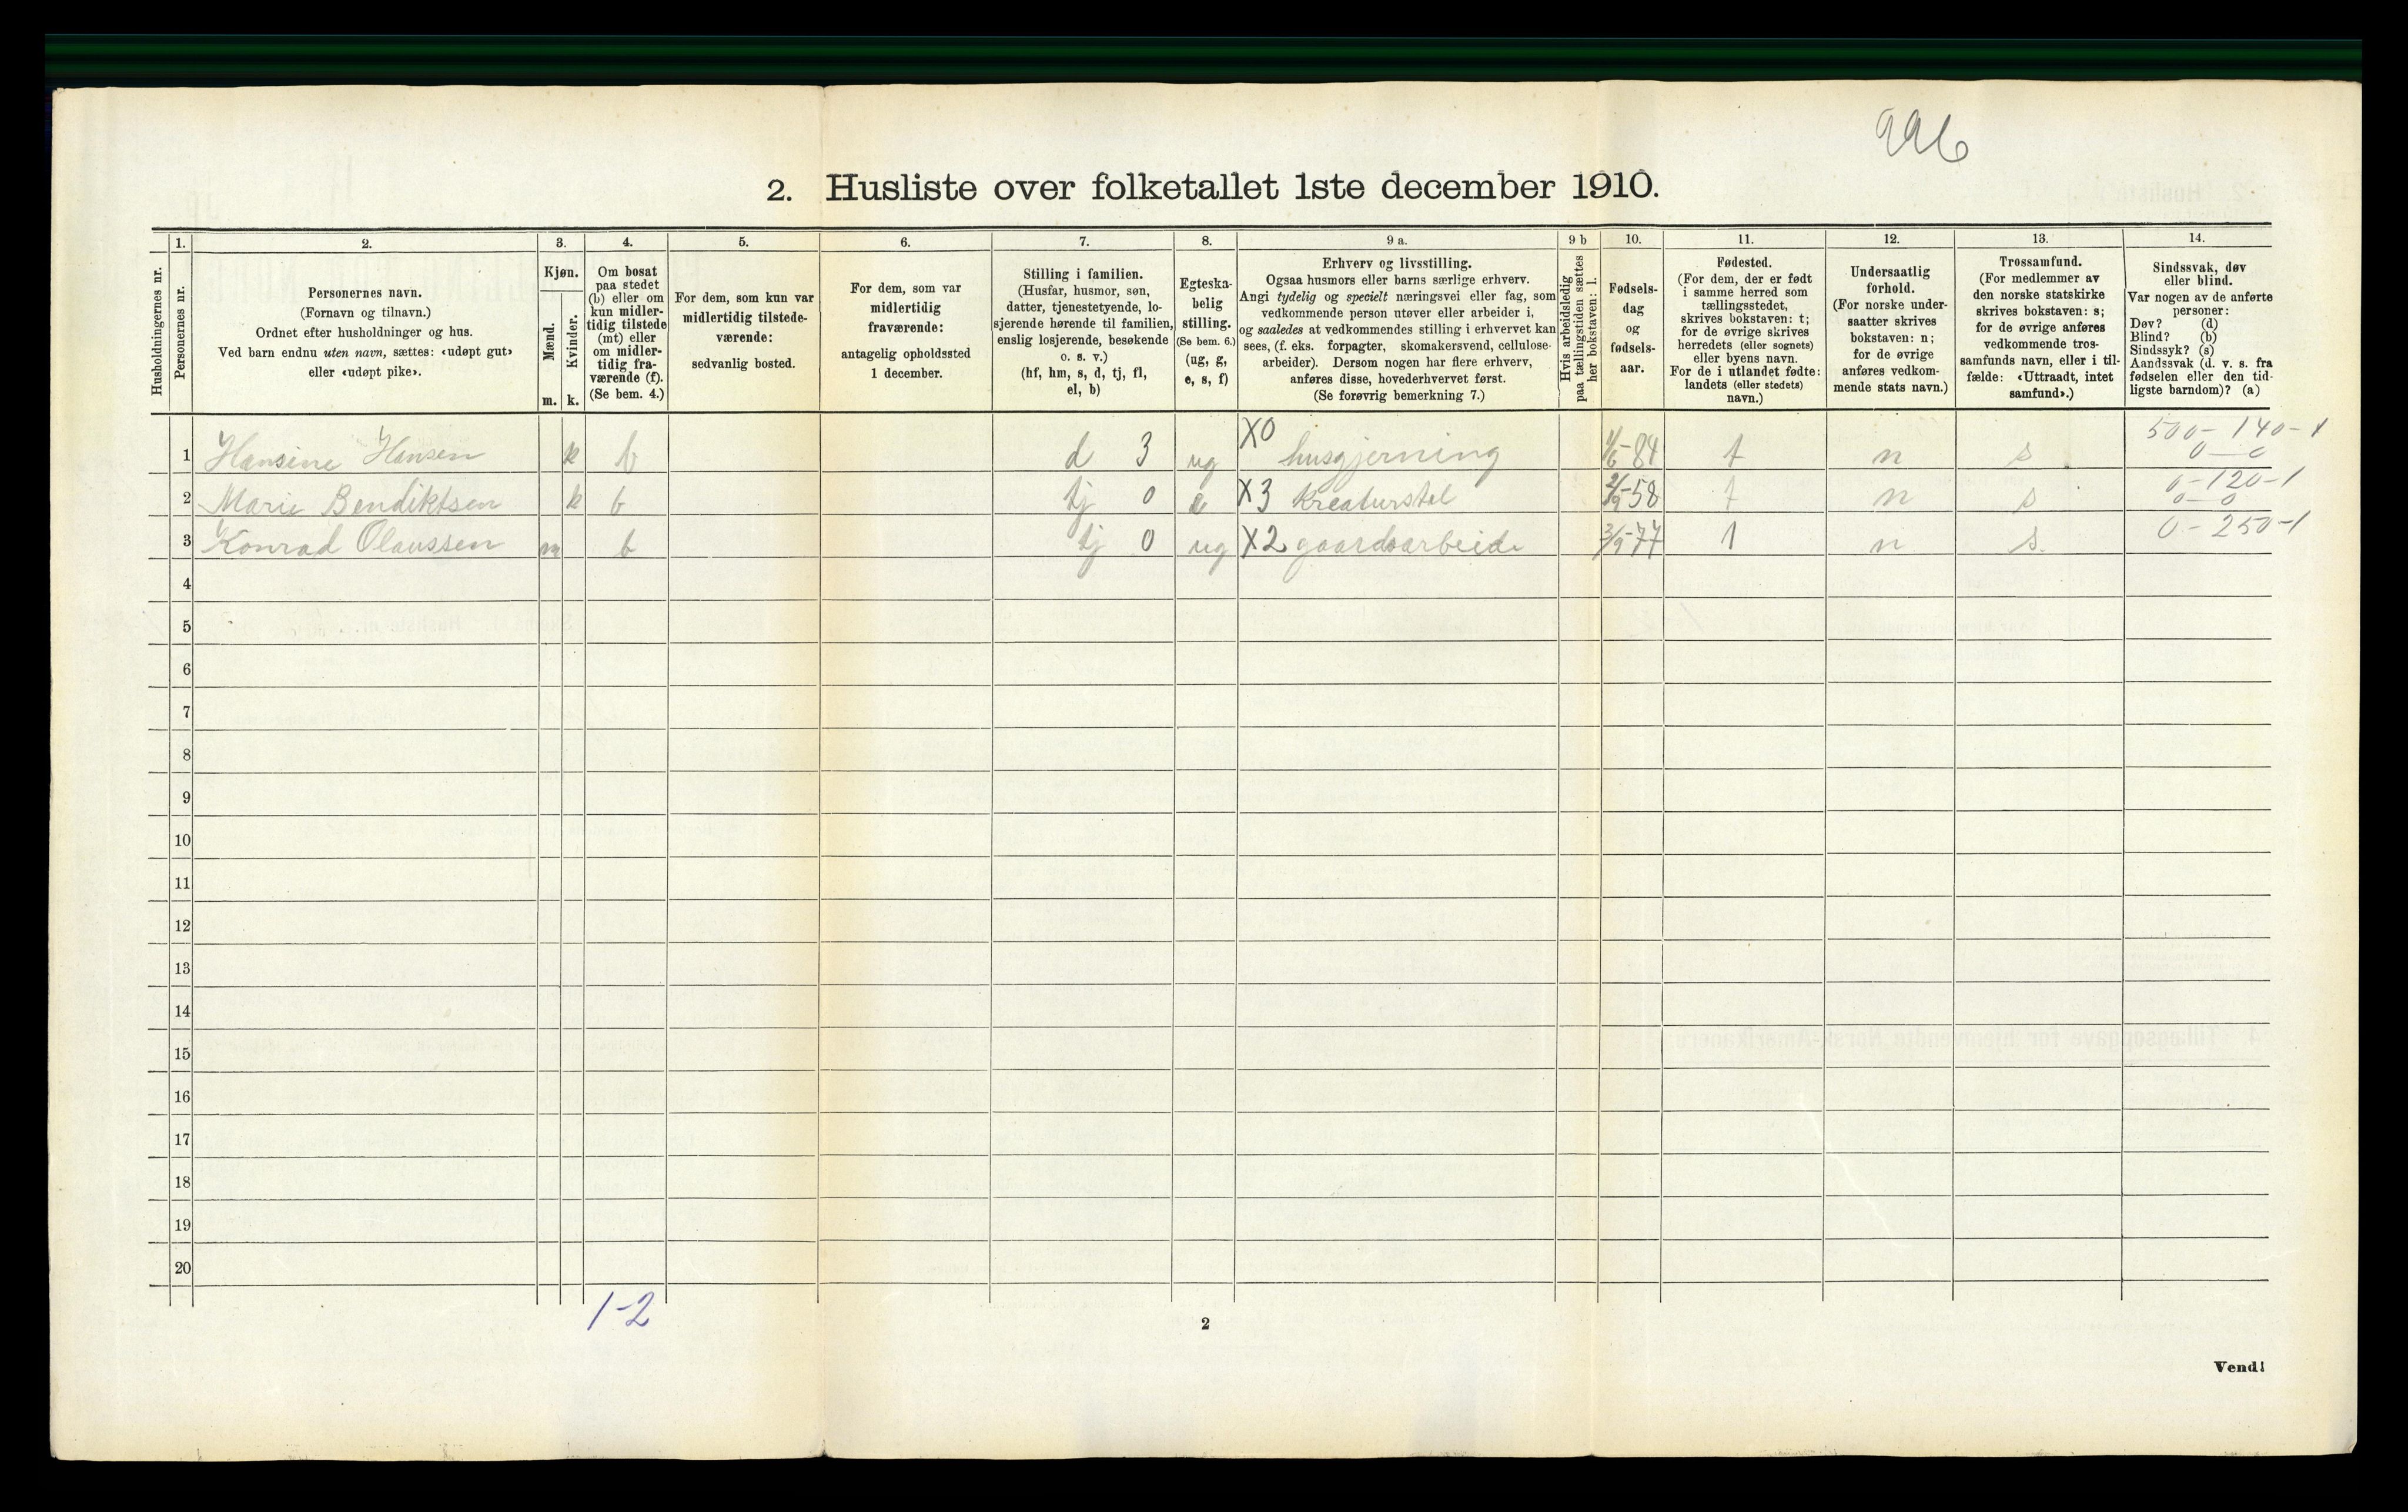 996
2. Husliste over folketallet 1ste december 1910.
Husholdningernes nr.
1.
Personernes nr.
2.
Personernes navn.
(Fornavn og tilnavn.)
Ordnet efter husholdninger og hus.
Ved barn endnu uten navn, sættes: «udøpt gut»
eller «udøpt pike».
3.
Kjøn.
Mænd.
Kvinder.
m. k.
4.
Om bosat
paa stedet
(b) eller om
kun midler-
tidig tilstede
(mt) eller
om midler-
tidig fra-
værende (f).
(Se bem. 4.)
5.
For dem, som kun var
midlertidig tilstede-
værende:
sedvanlig bosted.
6.
For dem, som var
midlertidig
fraværende:
antagelig opholdssted
1 december.
7.
Stilling i familien.
(Husfar, husmor, søn,
datter, tjenestetyende, lo-
sjerende hørende til familien,
enslig losjerende, besøkende
o. s. v.)
(hf, hm, s, d, tj, fl,
el, b)
8.
Egteska-
belig
stilling.
(Se bem. 6.)
(ug, g,
e, s, f)
9 a.
Erhverv og livsstilling.
Ogsaa husmors eller barns særlige erhverv.
Angi tydelig og specielt næringsvei eller fag, som
vedkommende person utøver eller arbeider i,
og saaledes at vedkommendes stilling i erhvervet kan
sees, (f. eks. forpagter, skomakersvend, cellulose-
arbeider). Dersom nogen har flere erhverv,
anføres disse, hovederhvervet først.
(Se forøvrig bemerkning 7.)
9 b
Hvis arbeidsledig
paa tællingstiden sættes
her bokstaven: l.
10.
Fødsels-
dag
og
fødsels-
aar.
11.
Fødested.
(For dem, der er født
i samme herred som
tællingsstedet,
skrives bokstaven: t;
for de øvrige skrives
herredets (eller sognets)
eller byens navn.
For de i utlandet fødte:
landets (eller stedets)
navn.)
12.
Undersaatlig
forhold.
(For norske under-
saatter skrives
bokstaven: n;
for de øvrige
anføres vedkom-
mende stats navn.)
13.
Trossamfund.
(For medlemmer av
den norske statskirke
skrives bokstaven: s;
for de øvrige anføres
vedkommende tros-
samfunds navn, eller i til-
fælde: «Uttraadt, intet
samfund».)
14.
Sindssvak, døv
eller blind.
Var nogen av de anførte
personer:
Døv? (d)
Blind? (b)
Sindssyk? (s)
Aandssvak (d. v. s. fra
fødselen eller den tid-
ligste barndom)? (a)
1 Hansine Hansen k b d 3 ug X0 husgjerning 4/6-84 t n s 500-140-1
0-0
2 Marie Bendiktsen k b tj 0 e X3 kreaturstel 2/9-58 t n s 0-120-1
0-0
3 Konrad Olaussen m b tj 0 ug X2 gaardsarbeide 3/9-77 t n s. 0-250-1
4
5
6
7
8
9
10
11
12
13
14
15
16
17
18
19
20
1-2
2
Vend!